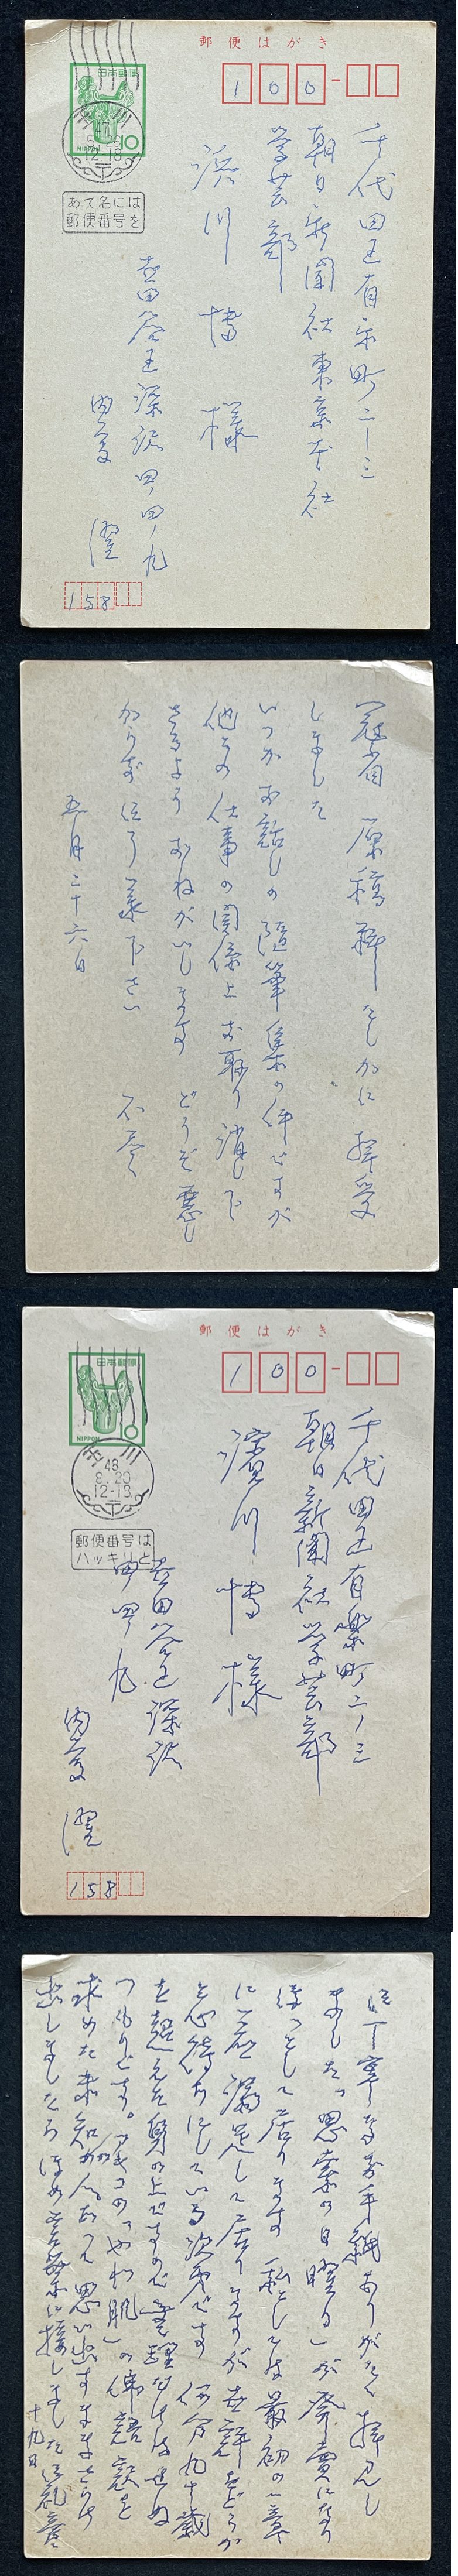 郵便はがき
日本郵便
NIPPON
10
玉川
47
12-18
あて名には
郵便番号を
100
千代田区有楽町二ノ三
朝日新聞社東京本社
学芸部
浜川 博 様
世田谷区深沢四ノ四ノ九
内藤 濯
158
冠省 原稿料たしかに拝受
しました
いつかお話しの随筆集の件ですが
他との仕事の関係上お取り消し下
さるようおねがいします どうぞ悪し
からず御了承下さい 不尽
五月二十六日
郵便はがき
日本郵便
NIPPON
10
玉川
48
12-18
郵便番号は
ハッキリと
100
千代田区有楽町二ノ三
朝日新聞社学芸部
濱川 博 様
世田谷区深沢
四ノ四ノ九
内藤 濯
158
御丁寧なお手紙ありがたく拝見し
ました「思索の日曜日」が発売になり
ほっとして居ります 私としては最初の一章
に一応満足して居りますが世評をどうか
と心待ちにしている次第です 何分九十歳
を超えた身の上ですので無理なけはせぬ
つもりです。アキコの「やわ肌」の佛語訳を
求めた未知の人もあって思い出すままさらけ
出しましたらほめ言葉に接しました
十九日